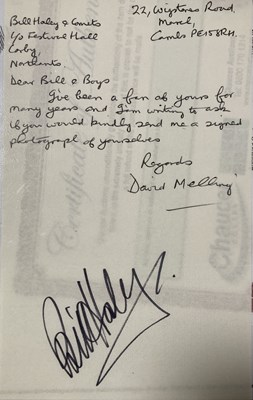 22, Wystrees Road,
Bill Haley & Comets
March,
c/o Festival Hall
Cambs PE15 8RH.
Corby,
Northants.
Dear Bill & Boys
I've been a fan of yours for
many years and I'm writing to ask
if you would kindly send me a signed
photograph of yourselves
Regards
David
Bill Haley